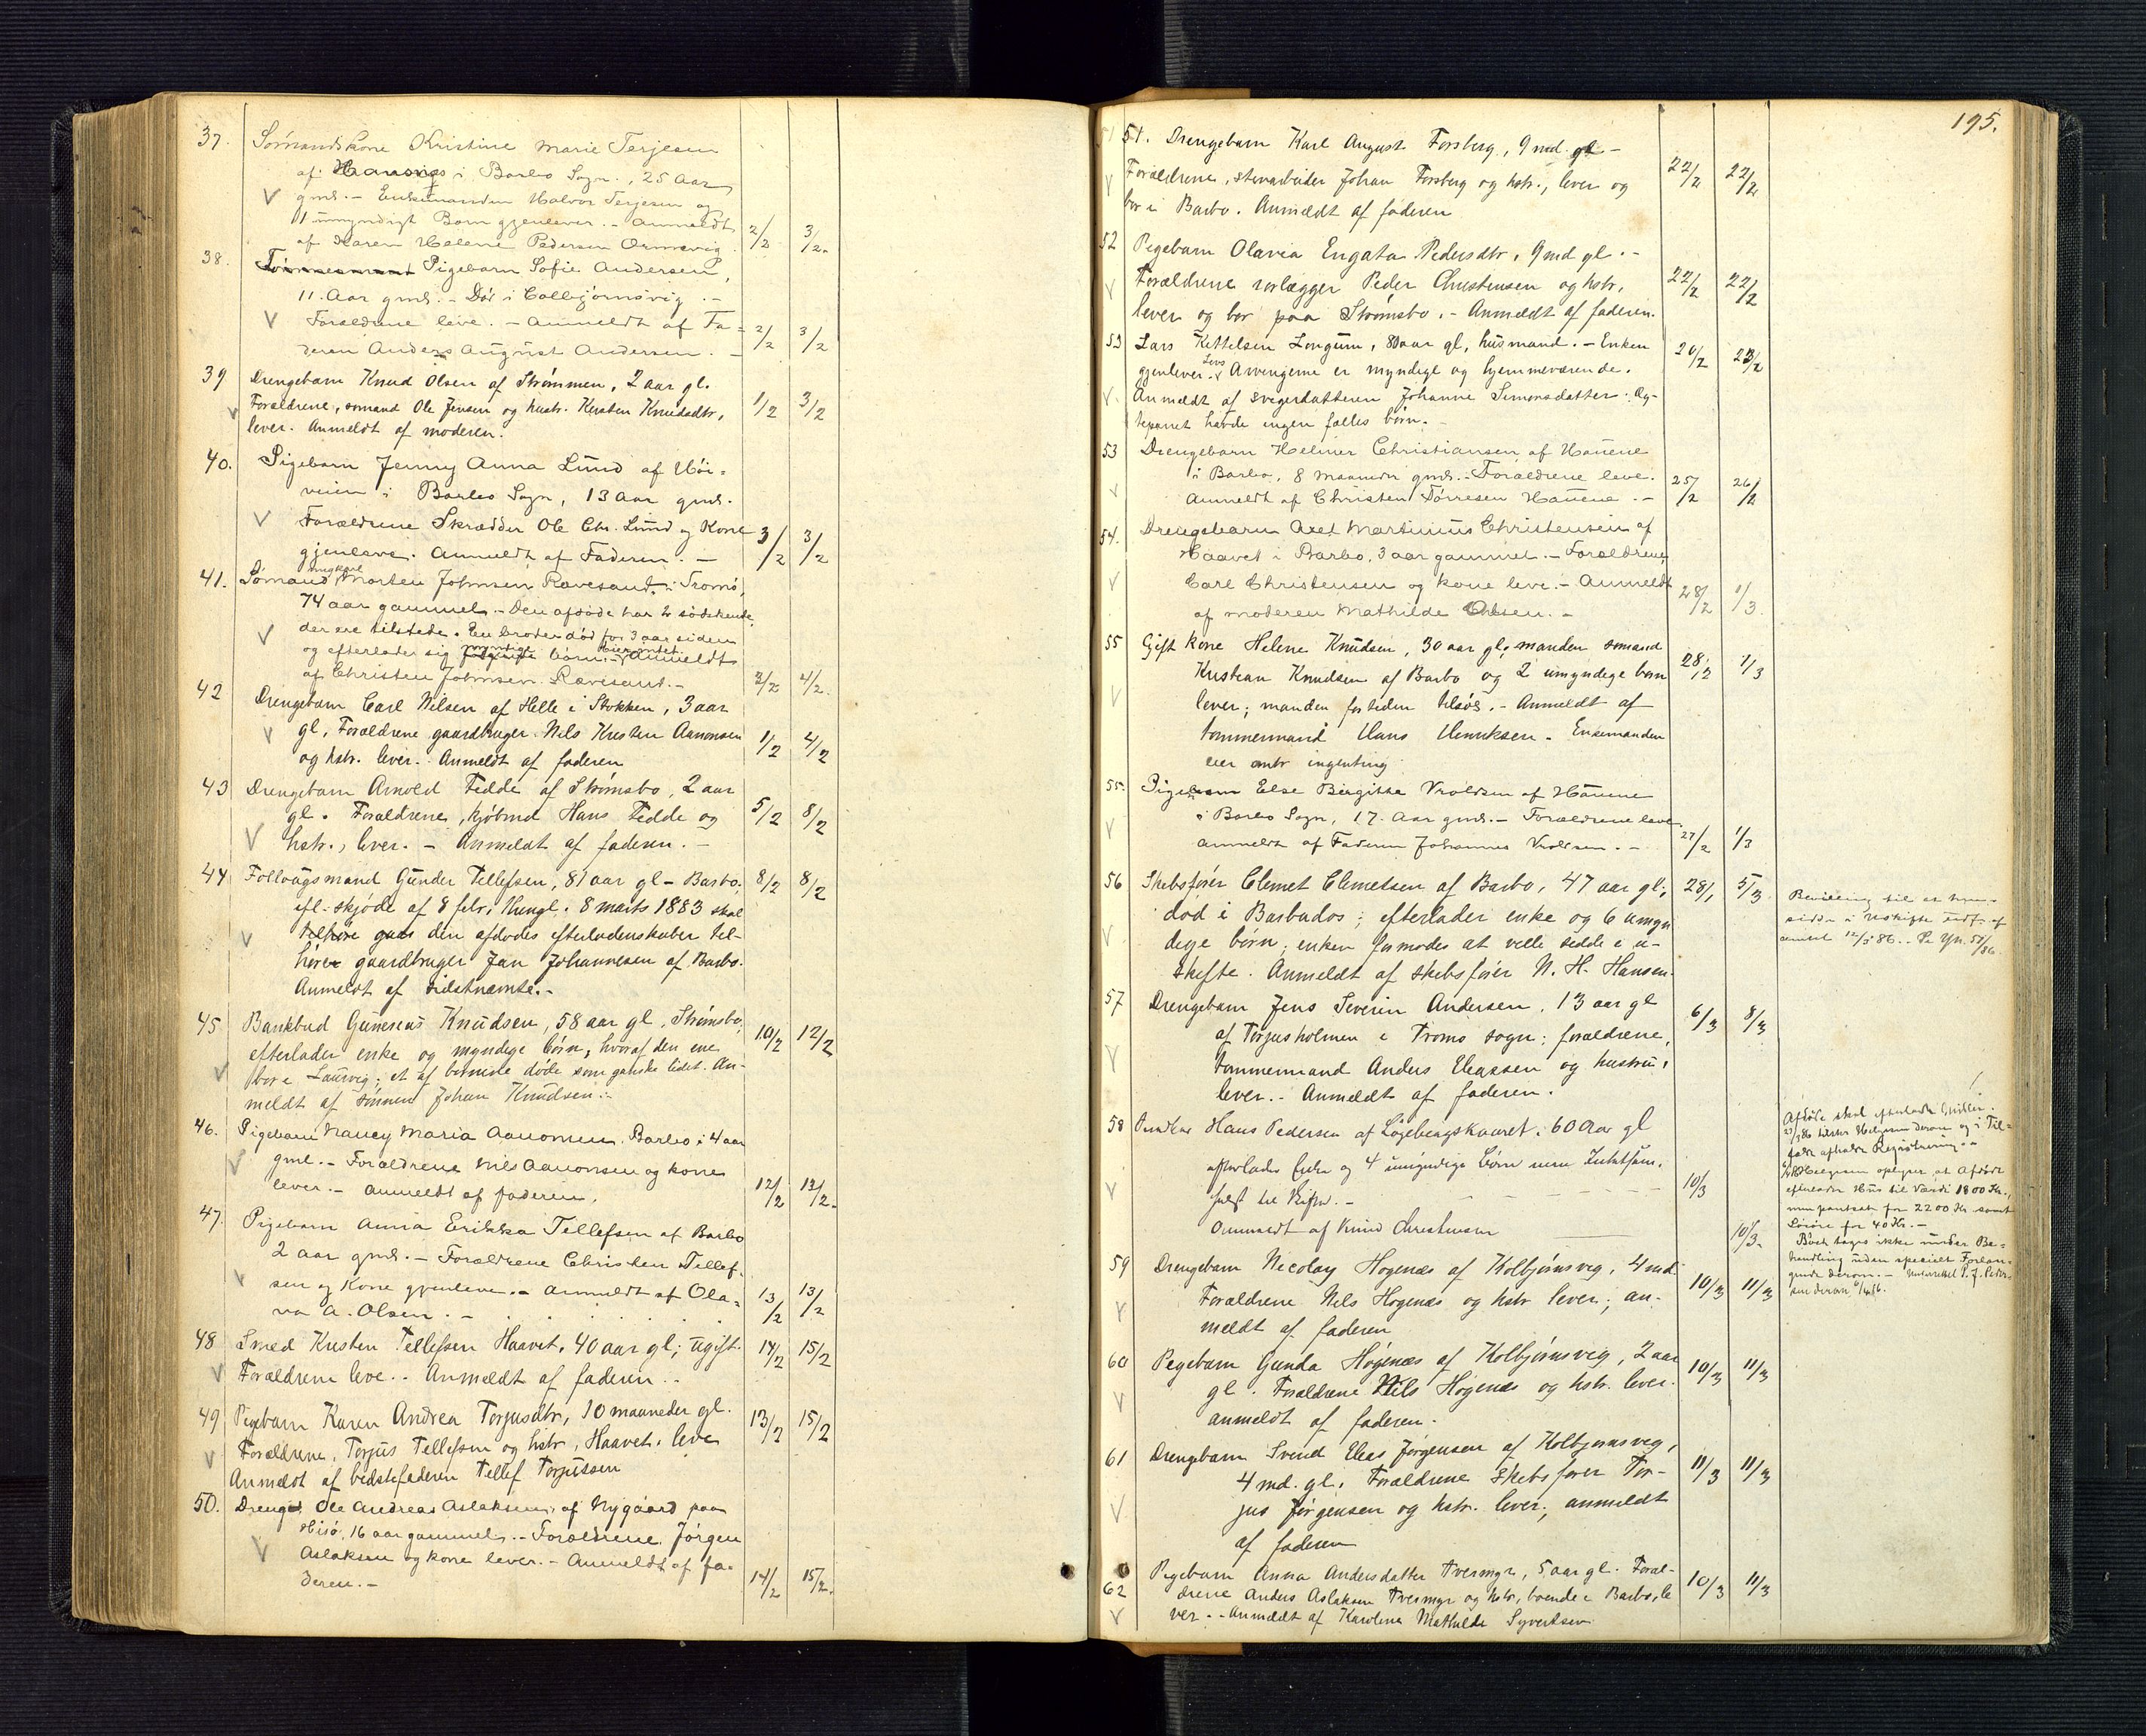 37. Sømandskone Kristine Marie Terjesen
af i Barbo Sogn, 25 Aar
gml. - Enkemanden Halvor Terjesen og
1 umyndigt Barn gjenlever. - Anmeldt
af Karen Helene Pedersen 2/2 3/2.
38. Pigebarn Sofie Andersen,
11 Aar gml. - Død i Colbjörnsvig. -
Forældrene leve. - Anmeldt af Fa-
deren Anders August Andersen. - 2/2 3/2
39 Drengebarn Knud Olsen af Strømmen, 2 aar gl.
Forældrene, sømand Ole Jensen og hustr. Kirsten Knudsdtr, 1/2 3/2
lever. Anmeldt af moderen.
40. Pigebarn Jenny Anna Lund af Høi-
veien i Barbo Sogn, 13 Aar gml.
Forældrene Skrædder Ole Chr. Lund og Kone 3/2 3/2
gjenleve. Anmeldt af Faderen. -
41. Sømand ungkarl Morten Johnsen Ravesand, Tromø,
74 aar gammel. - Den afdøde har 2 sødskende,
der ere tilstede. En broder død for 3 aar siden
og efterlader sig myndige børn. - Anmeldt
af Christen Johnsen Ravesand. - 3/2 4/2.
42 Drengebarn Carl Nilsen af Helle i Stokken, 3 aar
gl, Forældrene gaardbruger Nils Kristen Aanonsen 1/2 4/2
og hstr. lever. Anmeldt af faderen
43 Drengebarn Arnold Fedde af Strømsbo, 2 aar
gl. Forældrene, kjøbmd Hans Fedde og 5/2 8/2
hstr., lever. - Anmeldt af faderen. -
44 Føllougsmand Gunder Tellefsen, 81 aar gl - Barbo; 8/2 8/2
efl. skjøde af 8 febr, thingl. 8 marts 1883 skal
den afdødes efterladenskaber til-
høre gaardbruger Jan Johannesen af Barbo.
Anmeldt af sidstnævnte. -
45 Bankbud Gunerius Knudsen, 58 aar gl, Strømsbo, 10/2 12/2
efterlader enke og myndige børn, hvoraf den ene
bor i Laurvig; et af børnene døde som ganske lidet. An-
meldt af sønnen Johan Knudsen. -
46. Pigebarn Nancy Maria Aanonsen Barbo, 4 aar
gml. - Forældrene Nils Aanonsen og kone
lever. - Anmeldt af faderen. 12/2 12/2.
47. Pigebarn Anna Erikka Tellefsen af Barbo
2 aar gml. - Forældrene Christen Tellef-
sen og Kone gjenleve. - Anmeldt af Ola-
va A. Olsen. - 13/2 13/2
48 Smed Kristen Tellefsen Haavet, 40 aar gl; ugift. 14/2 15/2
Forældrene leve. - Anmeldt af faderen. -
49 Pigebarn Karen Andrea Torjusdtr, 10 maaneder gl. 13/2 15/2
Forældrene, Torjus Tellefsen og hstr, Haavet, leve
Anmeldt af bedstefaderen Tellef Torjussen
50. Dreng Ole Andreas Aslaksen, af Nygaard paa
Hisø, 16 aar gammel. - Forældrene, Jørgen
Aslaksen og kone lever. - Anmeldt af fa-
deren. - 14/2 15/2.
195.
51. Drengebarn Karl August Forsberg, 9 md. gl. - 22/2 22/2
Forældrene, stenarbeider Johan Forsberg og hstr., lever og
bor i Barbo. Anmeldt af faderen
52 Pigebarn Olavia Engata Pedersdtr, 9 md gl. -
Forældrene rorlægger Peder Christensen og hstr, 22/2 22/2
lever og bor paa Strømsbo. - Anmeldt af faderen.
53 Lars Kittelsen Longum, 80 aar gl, husmand. - Enken 20/2 23/2
gjenlever. Lars Arvingerne er myndige og hjemmeværende.
Anmeldt af svigerdatteren Johanne Simonsdatter. Æg-
teparret havde ingen fælles børn. -
53 Drengebarn Helmer Christiansen af Hauene
i Barbo, 8 Maaneder gml. - Forældrene leve.
Anmeldt af Christen Tørresen Hauene. - 25/2 26/2
54. Drengebarn Axel Martinius Christensen af
Haavet i Barbo, 3 aar gammel. - Forældrene,
Carl Christensen og kone leve. - Anmeldt 28/2 1/3.
af moderen Mathilde Olsen. -
55 Gift kone Helene Knudsen, 30 aar gl; manden sømand
Kristian Knudsen af Barbo og 2 umyndige børn 28/2 1/3
lever; manden for tiden tilsøs. - Anmeldt af
tømmermand Hans Henriksen. - Enkemanden
eier omtr ingenting
55. Pige Else Birgitte Vroldsen af Hauene
i Barbo Sogn, 17 Aar gml. - Forældrene leve.
Anmeldt af Faderen Johannes Vroldsen. - 27/2 1/3
56 Skibsfører Clemet Clemetsen af Barbo, 47 aar gl; 28/1 5/3
død i Barbados; efterlader enke og 6 umyn
dige børn; enken formodes at ville sidde i u-
skifte. Anmeldt af skibsfører N. H. Hansen.
Bevilling til at hen-
sidde i Uskifte udf. af
amtet 12/3 86.
57 Drengebarn Jens Severin Andersen, 13 aar gl 6/3 8/3
af Torjusholmen i Tromø sogn; forældrene,
tømmermand Anders Eliassen og hustru,
lever. - Anmeldt af faderen.
58 Hans Pedersen af 60 Aar gl
efterlader Enke og 4 umyndige børn
10/3
Anmeldt af Knud Christensen 10/3.
Afdøde skal efterlade
og i Til-
fælde afholde Registrering. -
Helgesen oplyser, at Afdøde
efterlader Hus til Værdi 1800 Kr.,
men pantsat for 2200 Kr samt
Løsøre for 40 Kr. -
Boet tages ikke under Be-
handling uden specielt Forlan-
gende derom. - Underrettet P. J. Peder-
sen derom
59 Drengebarn Nicolay Høgenæs af Kolbjørnsvig, 4 md 10/3 11/3
Forældrene Nils Høgenæs og hstr lever; an-
meldt af faderen
60 Pigebarn Gunda Høgenæs af Kolbjørnsvig, 2 aar 10/3 11/3
gl. Forældrene Nils Høgenæs og hstr. lever.
anmeldt af faderen.
61 Drengebarn Svend Elias Jørgensen af Kolbjørnsvig, 11/3 11/3
4 md. gl. Forældrene Skibsfører Tor-
jus Jørgensen og hstr. lever; anmeldt
af faderen
62 Pigebarn Anna Andersdatter Tversmyr, 5 aar gl. Foræl- 10/3 11/3
drene Anders Aslaksen Tversmyr og hstr, boende i Barbo, le
ver. - Anmeldt af Karoline Mathilde Syvertsen